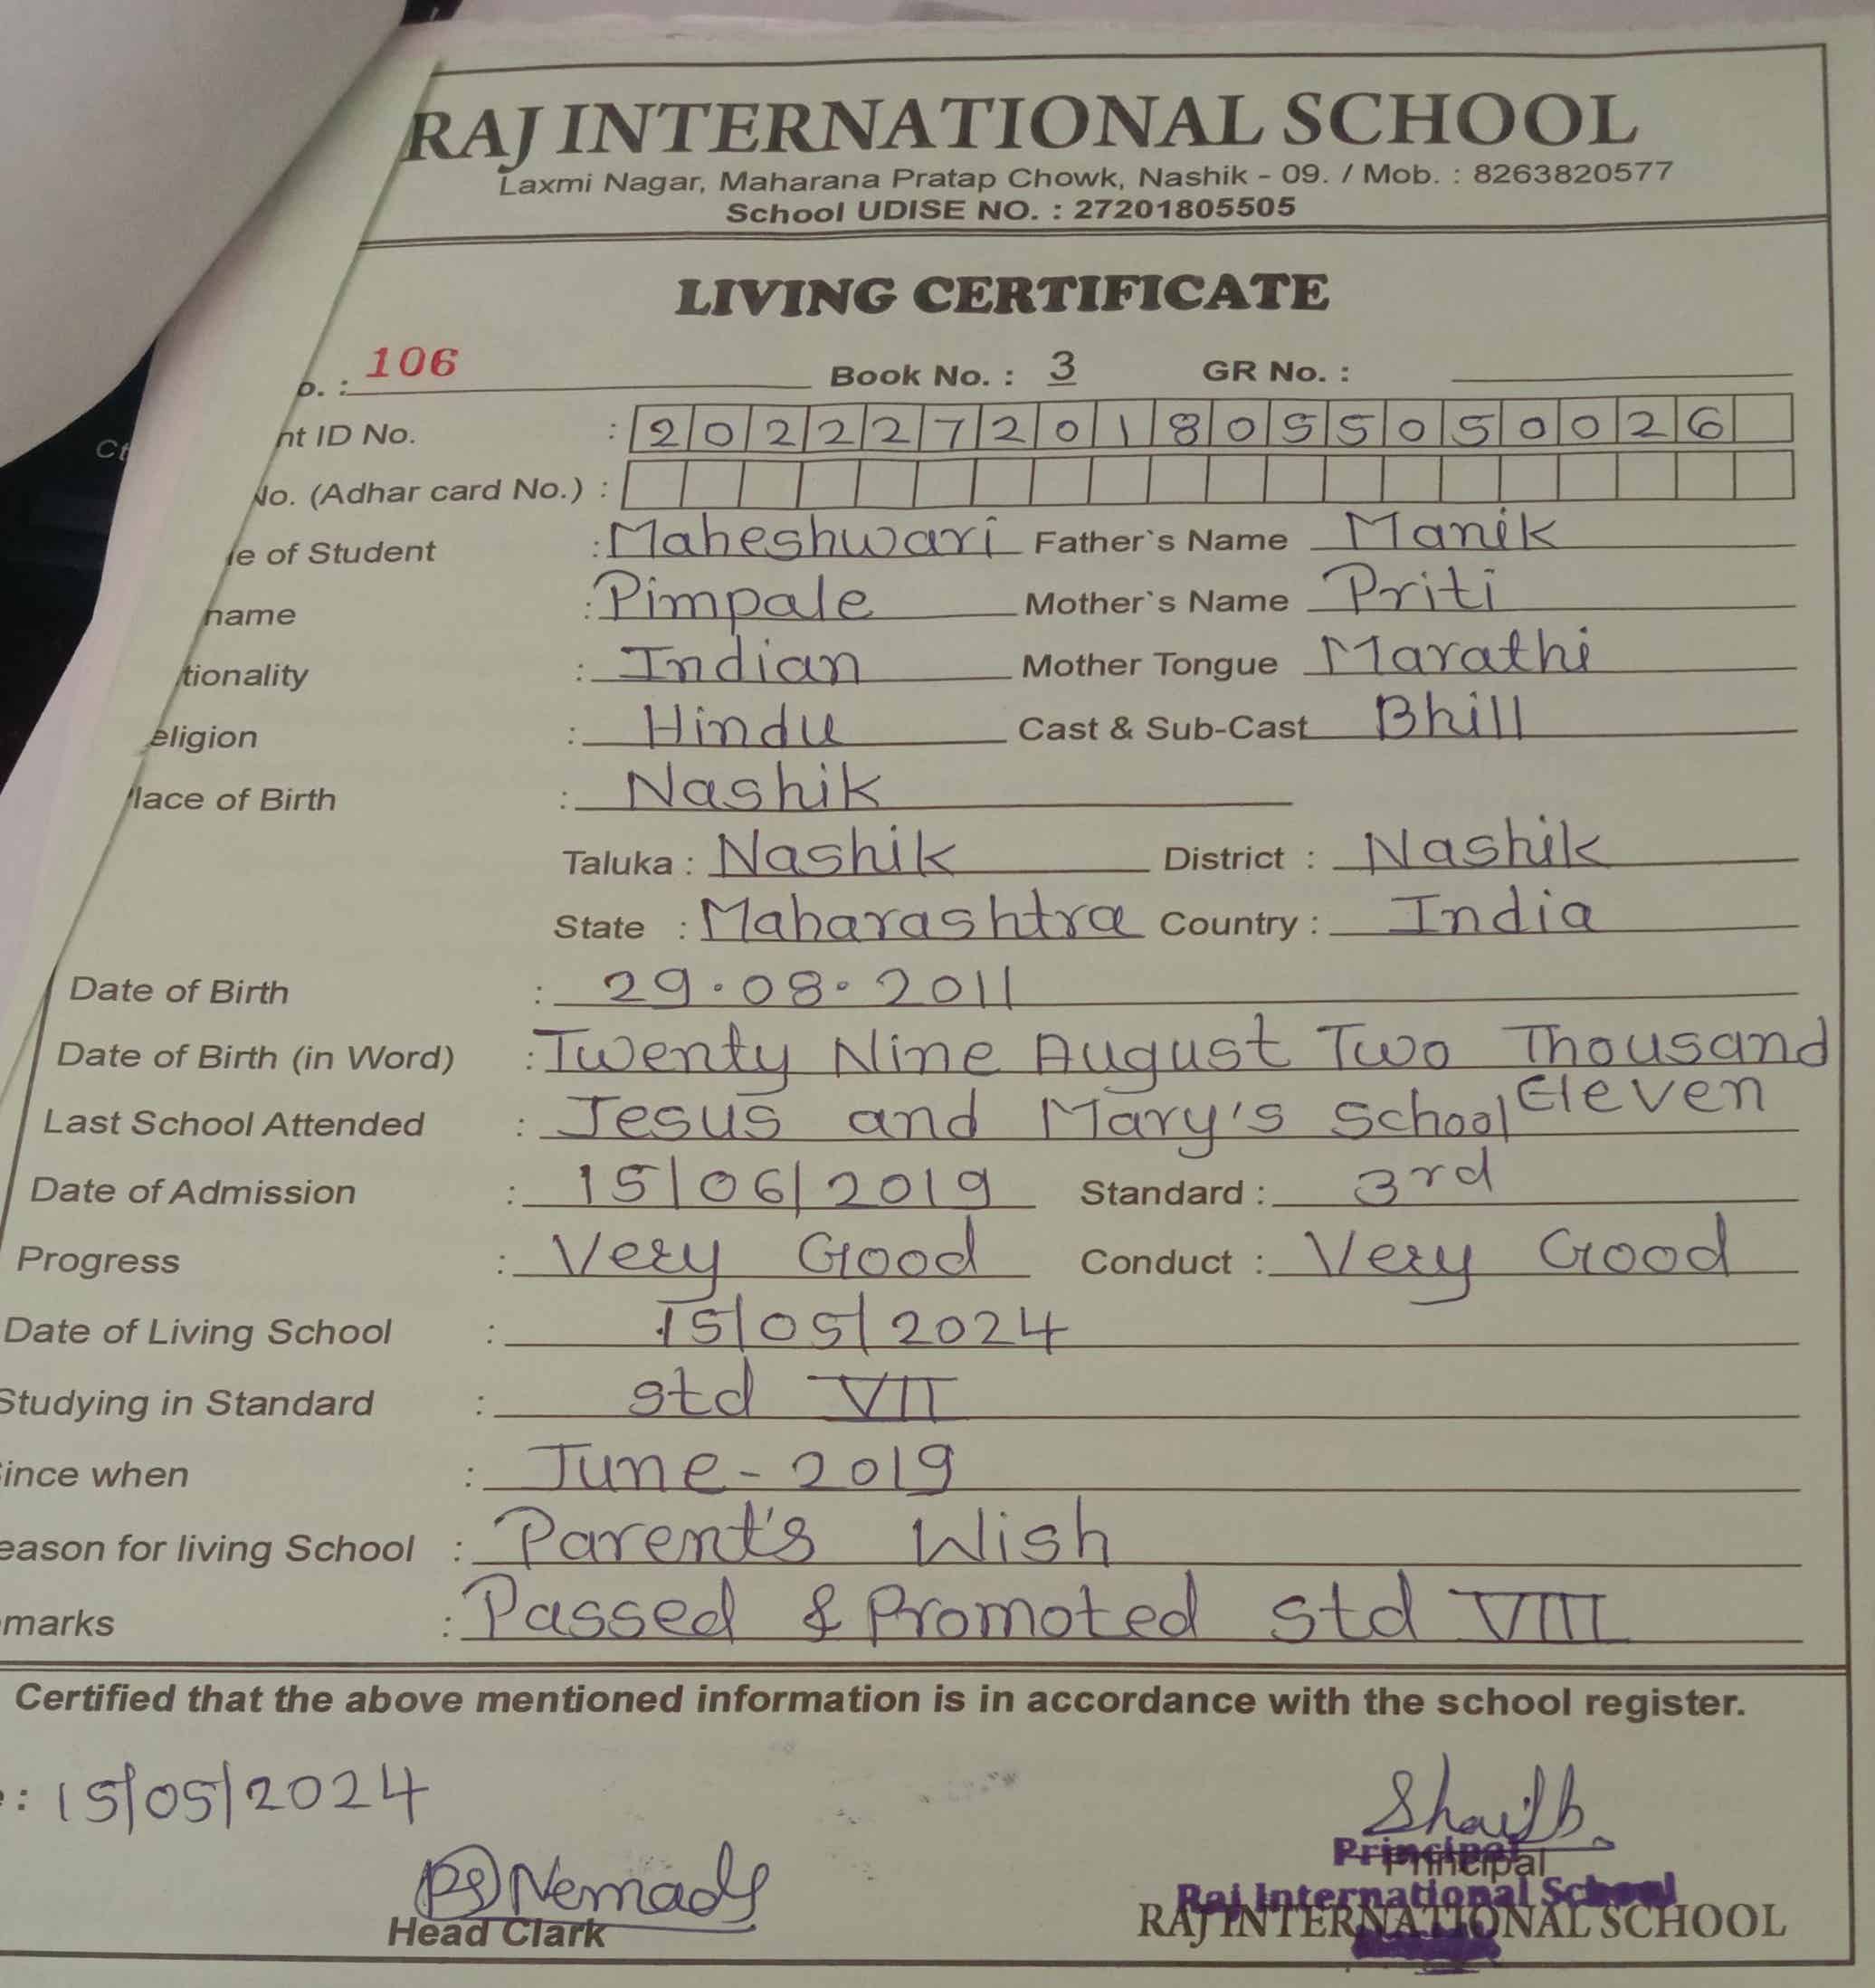 RAJ INTERNATIONAL SCHOOL
Laxmi Nagar, Maharana Pratap Chowk, Nashik - 09. / Mob. : 8263820577
School UDISE NO. : 27201805505
LIVING CERTIFICATE
o. : 106 Book No. : 3 GR No. :
nt ID No. : 2022272018055050026
No. (Adhar card No.) :
e of Student : Maheshwari Father`s Name Manik
name : Pimpale Mother`s Name Priti
tionality : Indian Mother Tongue Marathi
eligion : Hindu Cast & Sub-Cast Bhill
lace of Birth : Nashik
Taluka : Nashik District : Nashik
State : Maharashtra Country : India
Date of Birth : 29.08.2011
Date of Birth (in Word) : Twenty Nine August Two Thousand Eleven
Last School Attended : Jesus and Mary's School
Date of Admission : 15/06/2019 Standard : 3rd
Progress : Very Good Conduct : Very Good
Date of Living School : 15/05/2024
Studying in Standard : std VII
ince when : June-2019
eason for living School : Parent's Wish
marks : Passed & Promoted std VIII
Certified that the above mentioned information is in accordance with the school register.
: 15/05/2024
Principal
Principal
Raj International School
Head Clark
RAJ INTERNATIONAL SCHOOL